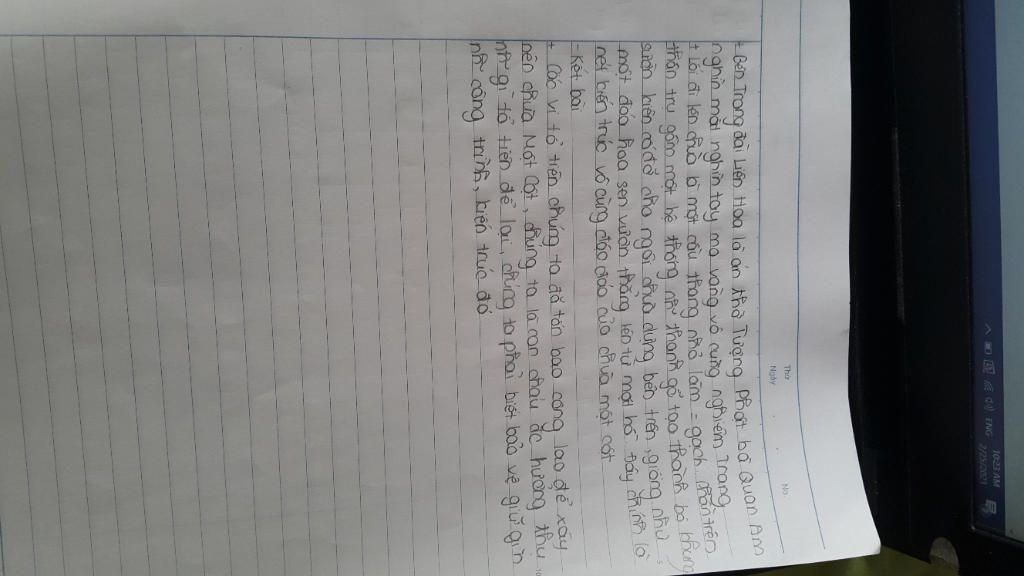 Thứ
Ngày
No.
+ Bên Trong đài Liên Hoa là án thờ Tượng Phật bà Quan Âm
nghìn mắt nghìn tay mạ vàng vô cùng nghiêm Trang
+ lối đi lên chùa là một cầu thang nhỏ làm = gạch, phần trên
thân trụ gồm một hệ thống nh~ thanh gỗ tạo thành bộ khung
sườn kiên cố đỡ cho ngôi chùa dựng bên trên, giống như
một đóa hoa sen vươn thẳng lên từ mặt hồ. Đây chính là
nét kiến trúc vô cùng độc đáo của chùa một cột
- Kết bài
+ Các vị tổ tiên chúng ta đã tốn bao công lao để xây
nên chùa Một Cột, chúng ta là con cháu đc hưởng thụ
nh~ gì tổ tiên để lại, chúng ta phải biết bảo vệ giữ gìn
nh~ công trình, kiến trúc đó
ENG
10:23 AM